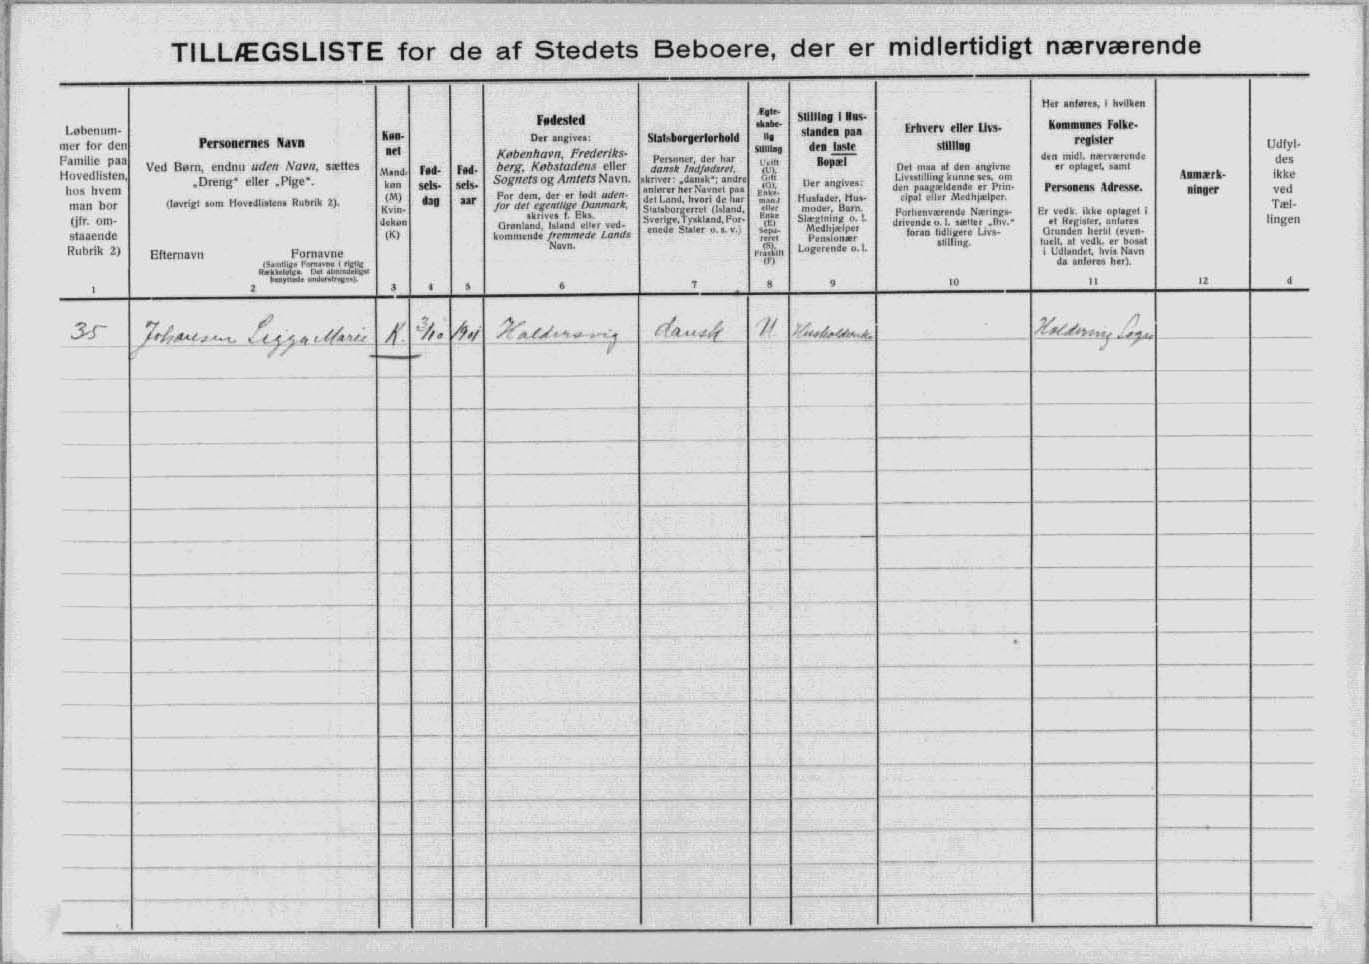 TILLÆGSLISTE for de af Stedets Beboere, der er midlertidigt nærværende
Løbenum-
mer for den
Familie paa
Hovedlisten,
hos hvem
man bor
(jfr. om-
staaende
Rubrik 2)
1
Personernes Navn
Ved Børn, endnu uden Navn, sættes
„Dreng“ eller „Pige“.
(Iøvrigt som Hovedlistens Rubrik 2).
Efternavn
Fornavne
(Samtlige Fornavne i rigtig
Rækkefølge. Det almindeligst
benyttede understreges).
2
Køn-
net
Mand-
køn
(M)
Kvin-
dekøn
(K)
3
Fød-
sels-
dag
4
Fød-
sels-
aar
5
Fødested
Der angives:
København, Frederiks-
berg, Købstadens eller
Sognets og Amtets Navn.
For dem, der er født uden-
for det egentlige Danmark,
skrives f. Eks.
Grønland, Island eller ved-
kommende fremmede Lands
Navn.
6
Statsborgerforhold
Personer, der har
dansk Indfødsret,
skriver: „dansk“; andre
anfører her Navnet paa
det Land, hvori de har
Statsborgerret (Island,
Sverige, Tyskland, For-
enede Stater o. s. v.)
7
Ægte-
skabe-
lig
Stilling
Ugift
(U),
Gift
(G),
Enke-
mand
eller
Enke
(E)
Sepa-
reret
(S),
Fraskilt
(F)
8
Stilling i Hus-
standen paa
den faste
Bopæl
Der angives:
Husfader, Hus-
moder, Barn,
Slægtning o. l.
Medhjælper
Pensionær
Logerende o. l.
9
Erhverv eller Livs-
stilling
Det maa af den angivne
Livsstilling kunne ses, om
den paagældende er Prin-
cipal eller Medhjælper.
Forhenværende Nærings-
drivende o. l. sætter „fhv.“
foran tidligere Livs-
stilling.
10
Her anføres, i hvilken
Kommunes Folke-
register
den midl. nærværende
er optaget, samt
Personens Adresse.
Er vedk. ikke optaget i
et Register, anføres
Grunden hertil (even-
tuelt, at vedk. er bosat
i Udlandet, hvis Navn
da anføres her).
11
Anmærk-
ninger
12
Udfyl-
des
ikke
ved
Tæl-
lingen
d
35 Johansen Sigga Marie K. 3/10 1901 Haldersvig dansk U Husholderske